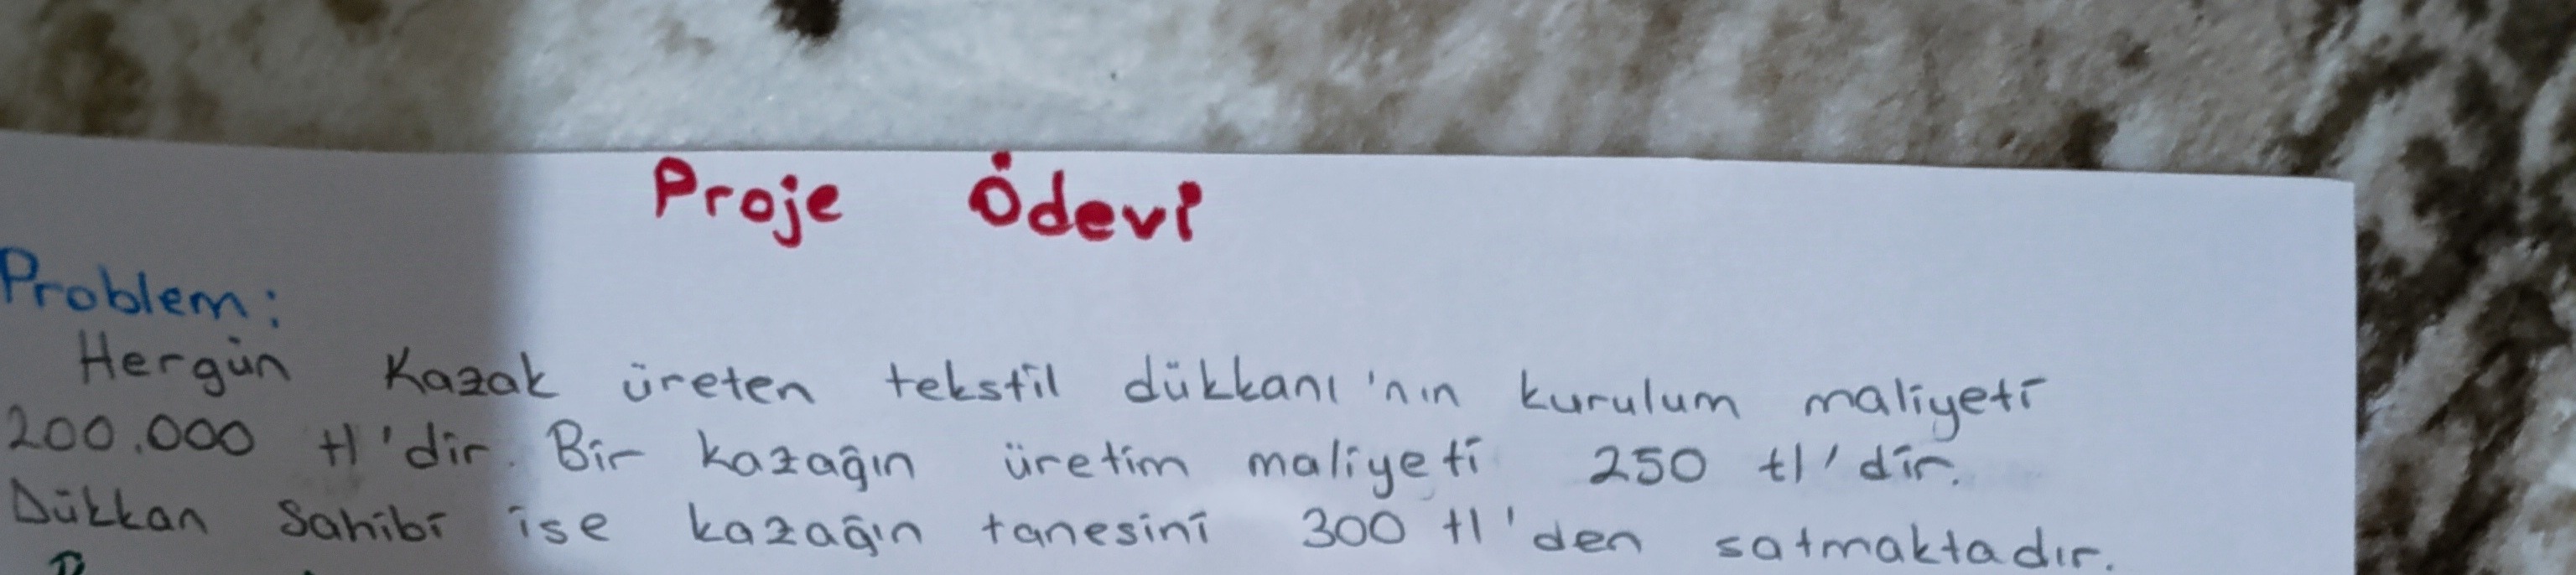 Proje Ödevi
Problem:
Hergün Kazak üreten tekstil dükkanı'nın kurulum maliyeti
200.000 tl'dir. Bir kazağın üretim maliyeti 250 tl'dir.
Dükkan Sahibi ise kazağın tanesini 300 tl'den satmaktadır.